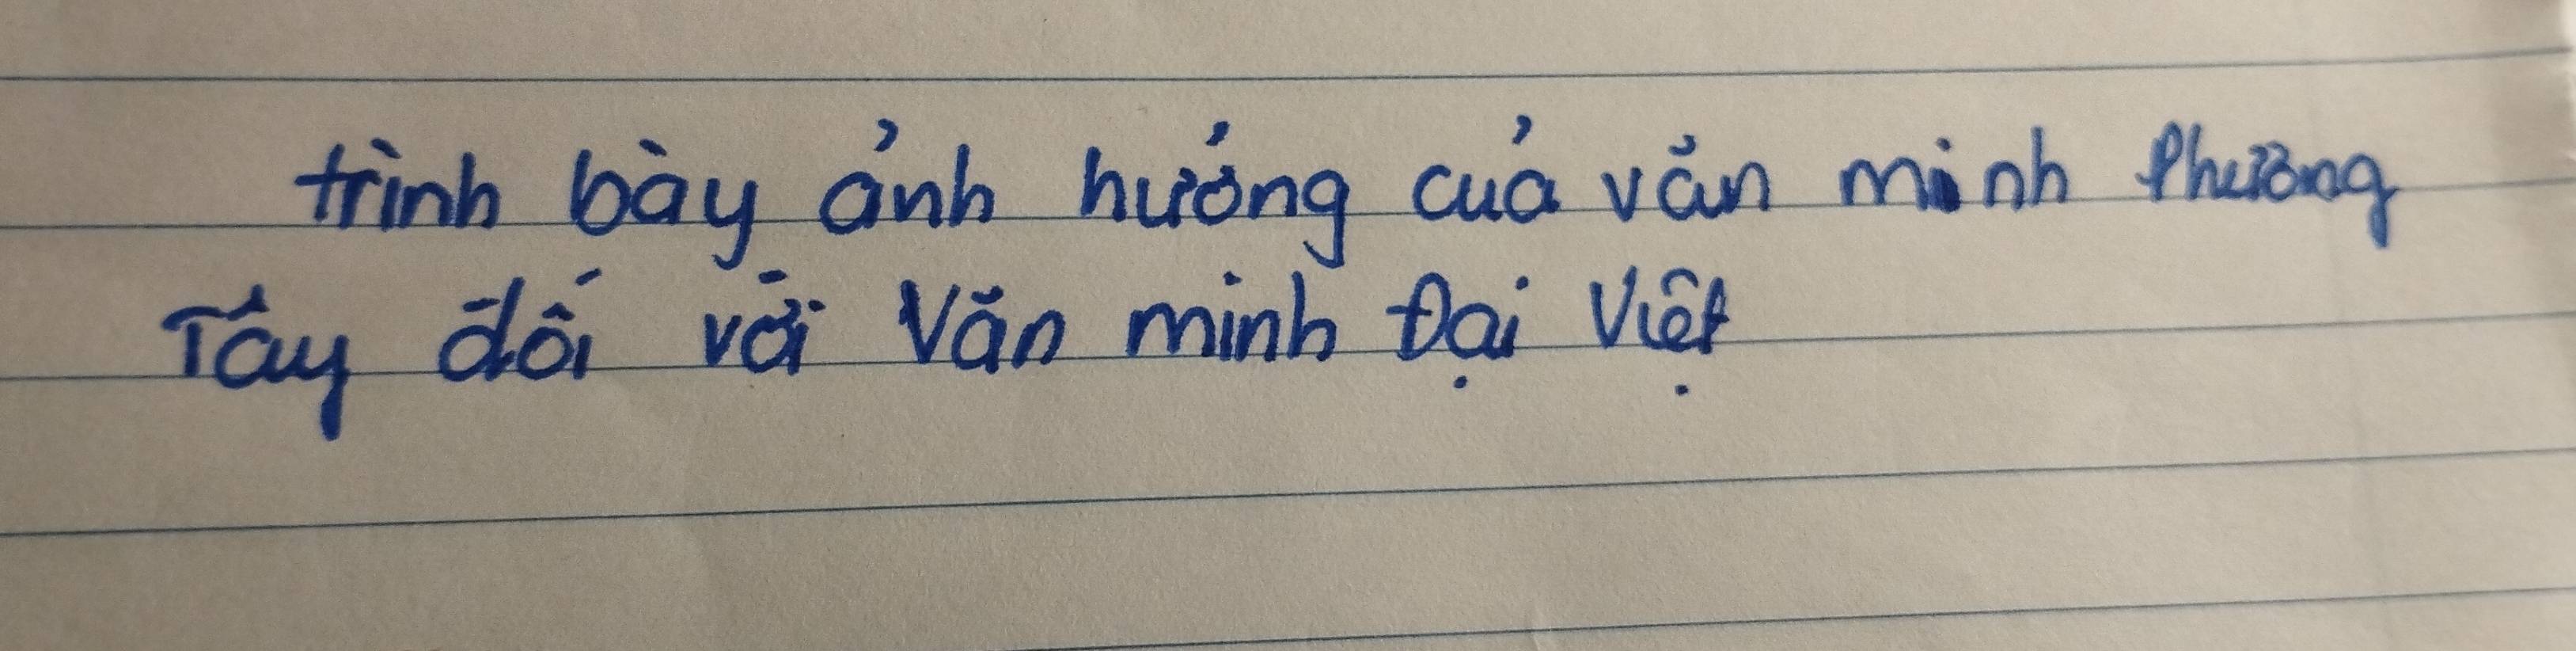 trình bày ảnh hưởng của văn minh Phương
Tây đối với Văn minh Đại Việt